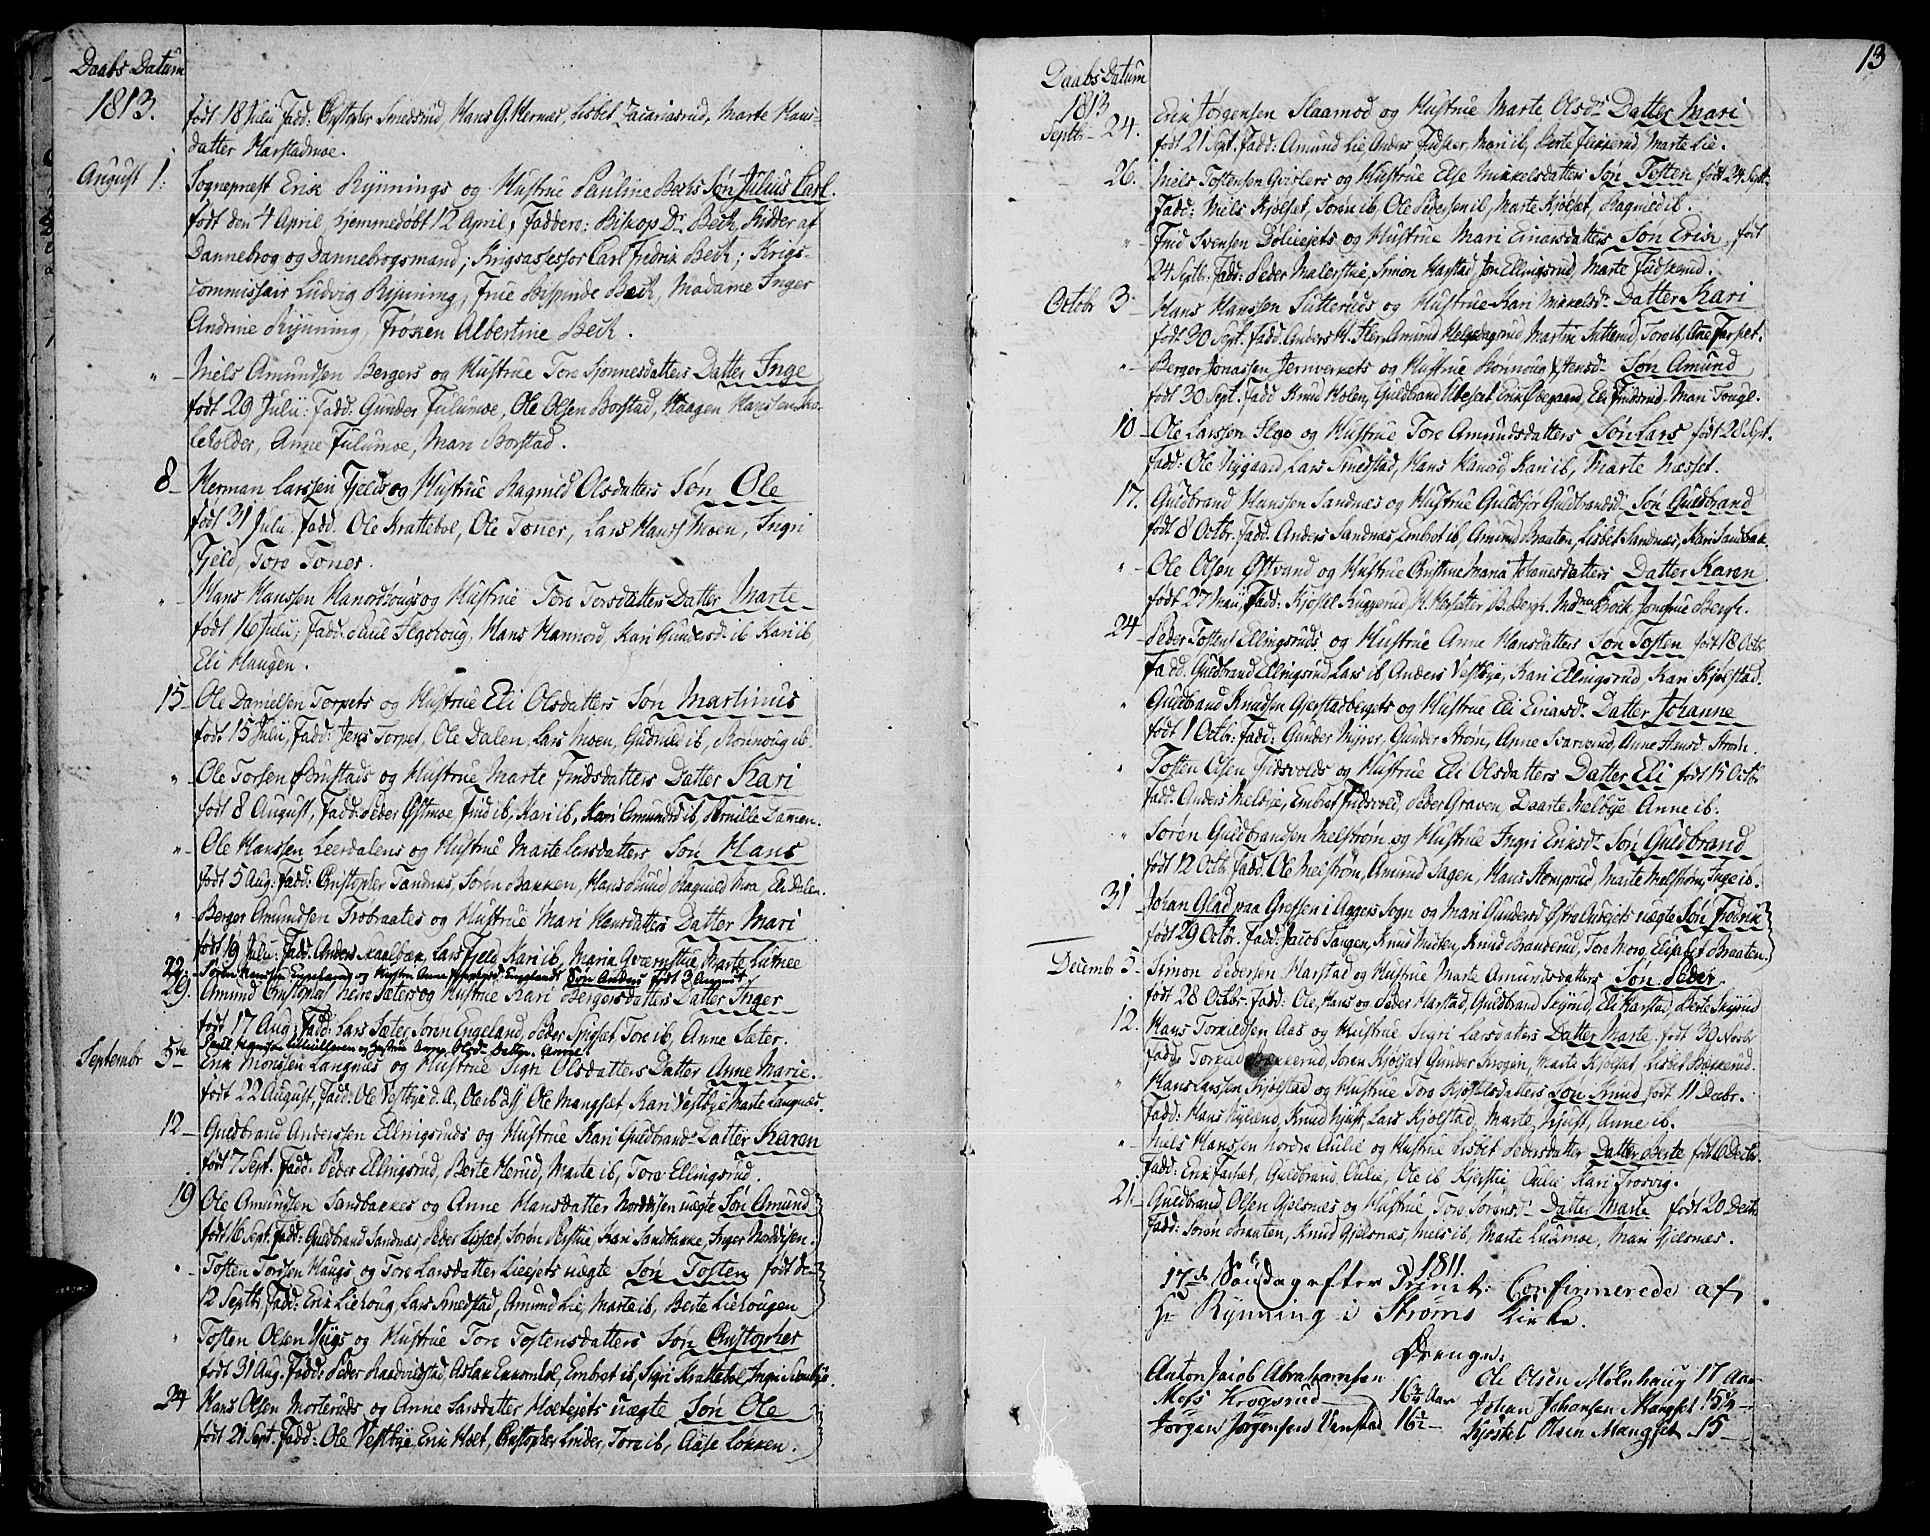 Daabs Datum
1813.
født 18 Julii Fadd. Christopher Smedsrud, Hans G. Hernes, Lisbet Zacariasrud, Marte Hans-
datter Harstadmoe.
August 1.
Sognepræst Erik Rynnings og Hustrue Pauline Becks Søn Julius Carl.
født den 4 April, hjemmedøbt 12 April, Faddere: Biskop Dr. Beck, Ridder af
Dannebrog og Dannebrogsmand; Krigsassessor Carl Fredrik Beck; Krigs-
commissair Ludvig Rynning, Frue Bispinde Beck, Madame Inger
Andrine Rynning, Frøken Albertine Beck.
" Niels Amundsen Bergers og Hustrue Tore Sjønnesdatters Datter Inge
født 29 Julii: Fadd. Gunder Fulumoe, Ole Olsen Borstad, Haagen Hanssen Sko-
leholder, Anne Fulumoe, Mari Borstad.
8 Herman Larssen Fjelds og Hustrue Ragnild Olsdatters Søn Ole
født 31 Julii, Fadd. Ole Krattebøl, Ole Toner, Lars Hanss Moen, Ingri
Fjeld, Tore Toner.
" Hans Hanssen Hanordhougs og Hustrue Tore Torsdatters Datter Marte
født 16 Julii, Fadd. Poul Houg, Hans Hannord, Kari Gundersd. ib Kari ib,
Eli Haugen.
15 Ole Danielsen Torpets og Hustrue Eli Olsdatters Søn Martinus
født 15 Julii, Fadd: Jens Torpet, Ole Dalen, Lars Moen, Gudnild ib, Rønnoug ib.
" Ole Torsen Brustads og Hustrue Marte Findsdatters Datter Kari
født 8 August, Fadd: Peder Østmoe, Find ib, Kari ib, Kari Amundsd ib, Pernille Damen.
" Ole Hanssen Leerdalens og Hustrue Marte Larsdatters Søn Hans
født 5 Aug: Fadd: Christopher Sandnes, Søren Bakken, Hans Ruud, Ragnild Moe, Eli Dalen.
" Berger Amundsen Trøbraates og Hustrue Mari Hansdatters Datter Mari
født 19 Julii: Fadd: Anders Kaalbæk, Lars Fjeld, Kari ib, Maria Qværnstue, Marte Lutnee
22. Søren Hansen Engeland og Hustru Anne Engelandt Søn Anders født 3 August
29. Amund Christophers. Sæters og Hustrue Kari Bergersdatters Datter Inger
født 17 Aug: Fadd: Lars Sæter, Søren Engeland, Peder Spigset, Tore ib, Anne Sæter.
Poul Hansen og Hustrue Anne Olsd. Datter Anne.
Septembr 5te Erik Monsen Langnes og Hustrue Sigri Olsdatters Datter Anne Marie.
født 22 August, Fadd: Ole Vestbye d. Æ, Ole ib d. y. Ole Mangset, Kari Vestbye, Marte Langnæs.
12 Guldbrand Anderssen Ellingsruds og Hustrue Kari Guldbrandsd. Datter Karen
født 7 Sept. Fadd: Peder Ellingsrud, Berte Herud, Marte ib, Tore Ellingsrud.
19 Ole Amundsen Sandbakkes og Anne Hansdatter Norddisen uægte Søn Amund
født 16 Sept. Fadd: Guldbrand Sandnæs, Peder Lisset, Søren Perstue, Kari Sandbakke, Inger Norddisen.
" Tosten Tordsen Haugs og Tore Larsdatter Lieejets uægte Søn Tosten født de
12 Septbr, Fadd: Erik Liehoug, Lars Smedstad, Amund Lie, Marte ib, Berte Liehougen
" Tosten Olsen Viigs og Hustrue Tore Tostensdatters Søn Christopher
født 31 Aug. Fadd: Peder Raadvildstad, Aslak Embret ib, Sigri Krattebøl, Ingri
24 Hans Olsen Morteruds og Anne Larsdatter Holtejets uægte Søn Ole
født 21 Sept. Fadd: Ole Vestbye, Erik Holt, Christopher Linder, Tore ib, Aase Løkken.
13
Daabs Datum
1813
Septbr 24. Erik Jørgensen Slaamod og Hustrue Marte Olsdr. Datter Mari
født 21 Sept. Fadd: Amund Lie, Anders Fidskier, Mari ib, Berte Flikkerud, Marte Lie.
26. Niels Tostensen Qvislers og Hustrue Else Mikkelsdatters Søn Tosten født 24 Sept.
Fadd: Niels Kjølset, Søren ib, Ole Pedersen ib, Marte Kjølset, Ragnild ib.
" Find Svensen Dølieejets og Hustrue Mari Einarsdatters Søn Erik, født
24 Septbr. Fadd: Peder Malerstue, Simon Harstad, Jon Ellingsrud, Marte Fidskrud.
Octobr 3 Hans Hanssen Sutteruds og Hustrue Kari Mikkelsdr. Datter Kari
født 30 Sept. Fadd: Anders M. Hler, Amund Helgengsrud, Martin Sutterud, Tore ib, Ane Farset.
" Berger Jonassen Jernverkets og Hustrue Rønnoug Estensdr. Søn Amund
født 30 Sept. Fadd Knud Holen, Guldbrand Ubeset, Erik Ødegaard, Eli Findsrud, Mari Tougl.
10 Ole Larssen Ilgo og Hustrue Tore Amundsdatters Søn Lars født 28 Sept.
Fadd: Ole Nygaard, Lars Smedstad, Hans Hanord, Kari ib, Marte Næsset.
17. Guldbrand Hanssen Sandnæs og Hustrue Guldbjør Guldbrandsd. Søn Guldbrand
født 8 Octbr. Fadd. Anders Sandnæs, Embret ib, Amund Braaten, Lisbet Sandnæs, Kari Sandbak.
" Ole Olsen Østvand og Hustrue Christine Maria Johanesdatters Datter Karen
født 27 Maii, Fadd: Kjøstel Kuggerud, H. Hersætter, B. Bergh, Madme Krock, Jongfrue Bergh.
24 Peder Tostens Ellingsruds og Hustrue Anne Hansdatters Søn Tosten født 18 Octb.
Fadd. Guldbrand Ellingsrud, Lars ib, Anders Vestbye, Kari Ellingsrud, Kari Kjølstad.
" Guldbrand Knudsen Gjerstadbergets og Hustrue Eli Einarsdr. Datter Johanne
født 1 Octbr. Fadd: Gunder Myrer, Gunder Strøm, Anne Svarverud, Anne Hansd. Strøm.
" Tosten Olsen Fidsvolds og Hustrue Eli Olsdatters Datter Eli født 15 Octbr
Fadd. Anders Melbye, Embret Fidsvold, Peder Graven, Daarte Melbye, Anne ib.
" Søren Guldbrandsen Melstrøm og Hustrue Ingri Eriksdr. Søn Guldbrand
født 12 Octb. Fadd. Ole Melstrøm, Amund Sagen, Hans Stomprud, Marte Melstrøm, Inge ib.
31 Johan Glad paa Grefsen i Aggers Sogn og Mari Gundersd. Østre Aurejets uægte Søn Fredrik
født 29 Octbr. Fadd: Jacob Tangen, Knud Mieken, Knud Branderud, Tore Moro, Elisabet Braaten.
Decembr 5 Simon Pedersen Harstad og Hustrue Marte Amundsdatters Søn Peder
født 28 Octbr. Fadd: Ole, Hans og Peder Harstad, Guldbrand Skyrud, Eli Harstad, Berte Skyrud
12. Hans Torkildsen Aas og Hustrue Sigri Larsdatters Datter Marte. født 30 Novbr
Fadd: Torkild Bækkerud, Søren Kjølset, Gunder Krogen, Marte Kjølset, Lisbet Bækkerud.
" Hans Larssen Kjølstad og Hustrue Tore Kjøstelsdatters Søn Knud født 11 Decbr.
Fadd: Hans Nylend, Knud Njust, Lars Kjølstad, Marte Njust, Anne ib.
" Niels Hanssen Nordre Aulie og Hustrue Lisbet Pedersdatter Datter Berte født 6 Decbr.
Fadd: Erik Farset, Guldbrand Aulie, Ole ib Kjerstie Aulie Kari Trosvig.
21. Guldbrand Olsen Gjelsnæs og Hustrue Tore Sørensdr. Datter Marte født 20 Decbr.
Fadd: Søren Braaten, Knud Gjelsnæs, Niels ib, Marte Luemoe, Mari Gjelsnæs.
1811.
17de Søndag efter Trinit: Confirmerede af
Hr Rynning i Strøms Kirke.
Drenge.
Anton Jacob Abrahamsen
Moss Krogsrud 16 3/4 Aar
Jørgen Jørgensen Venstad 16 1/2
Ole Olsen Molnhaug 17 Aar
Johan Johansen Mangset 15 1/4
Kjøstel Olsen Mangset 15